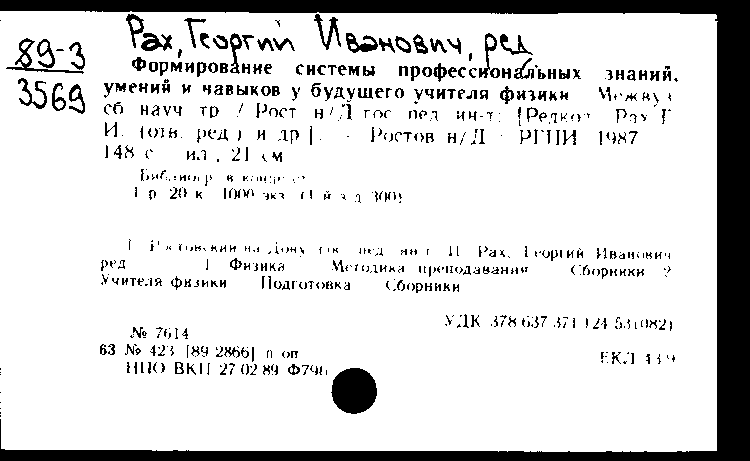 Рах, Георгий Иванович, ред
89-3
3569
Формирование системы профессиональных знаний,
умений и навыков у будущего учителя физики Межвуз
сб науч тр / Рост н/Д гос пед ин-т; [Редкол Рах Г
И. (отв. ред.) и др]. - Ростов н/Д РГПИ 1987
148 с ил , 21 см
Библиогр в конце ст
1 р 20 к 1000 экз
I Ростовский на Дону гос пед ин-т II Рах, Георгий Иванович
ред 1 Физика Методика преподавания Сборники 2
Учителя физики Подготовка Сборники
УДК 378 637 371 124 53(082)
№ 7614
63 № 423 [89 2866] п оп
НПО ВКП 27 02 89 Ф796
ЕКЛ